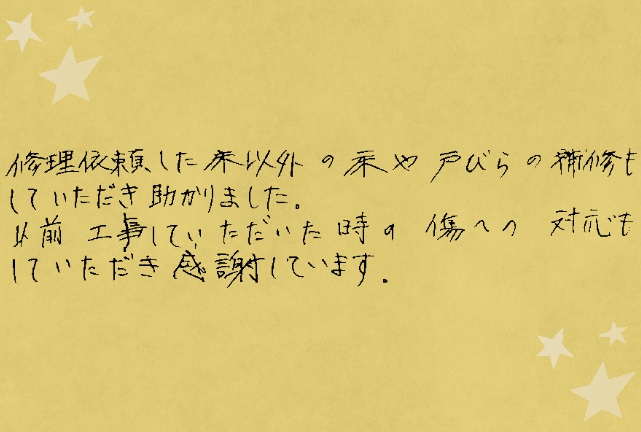 修理依頼した床以外の床や戸びらの補修も
していただき助かりました。
以前工事していただいた時の傷への対応も
していただき感謝しています。